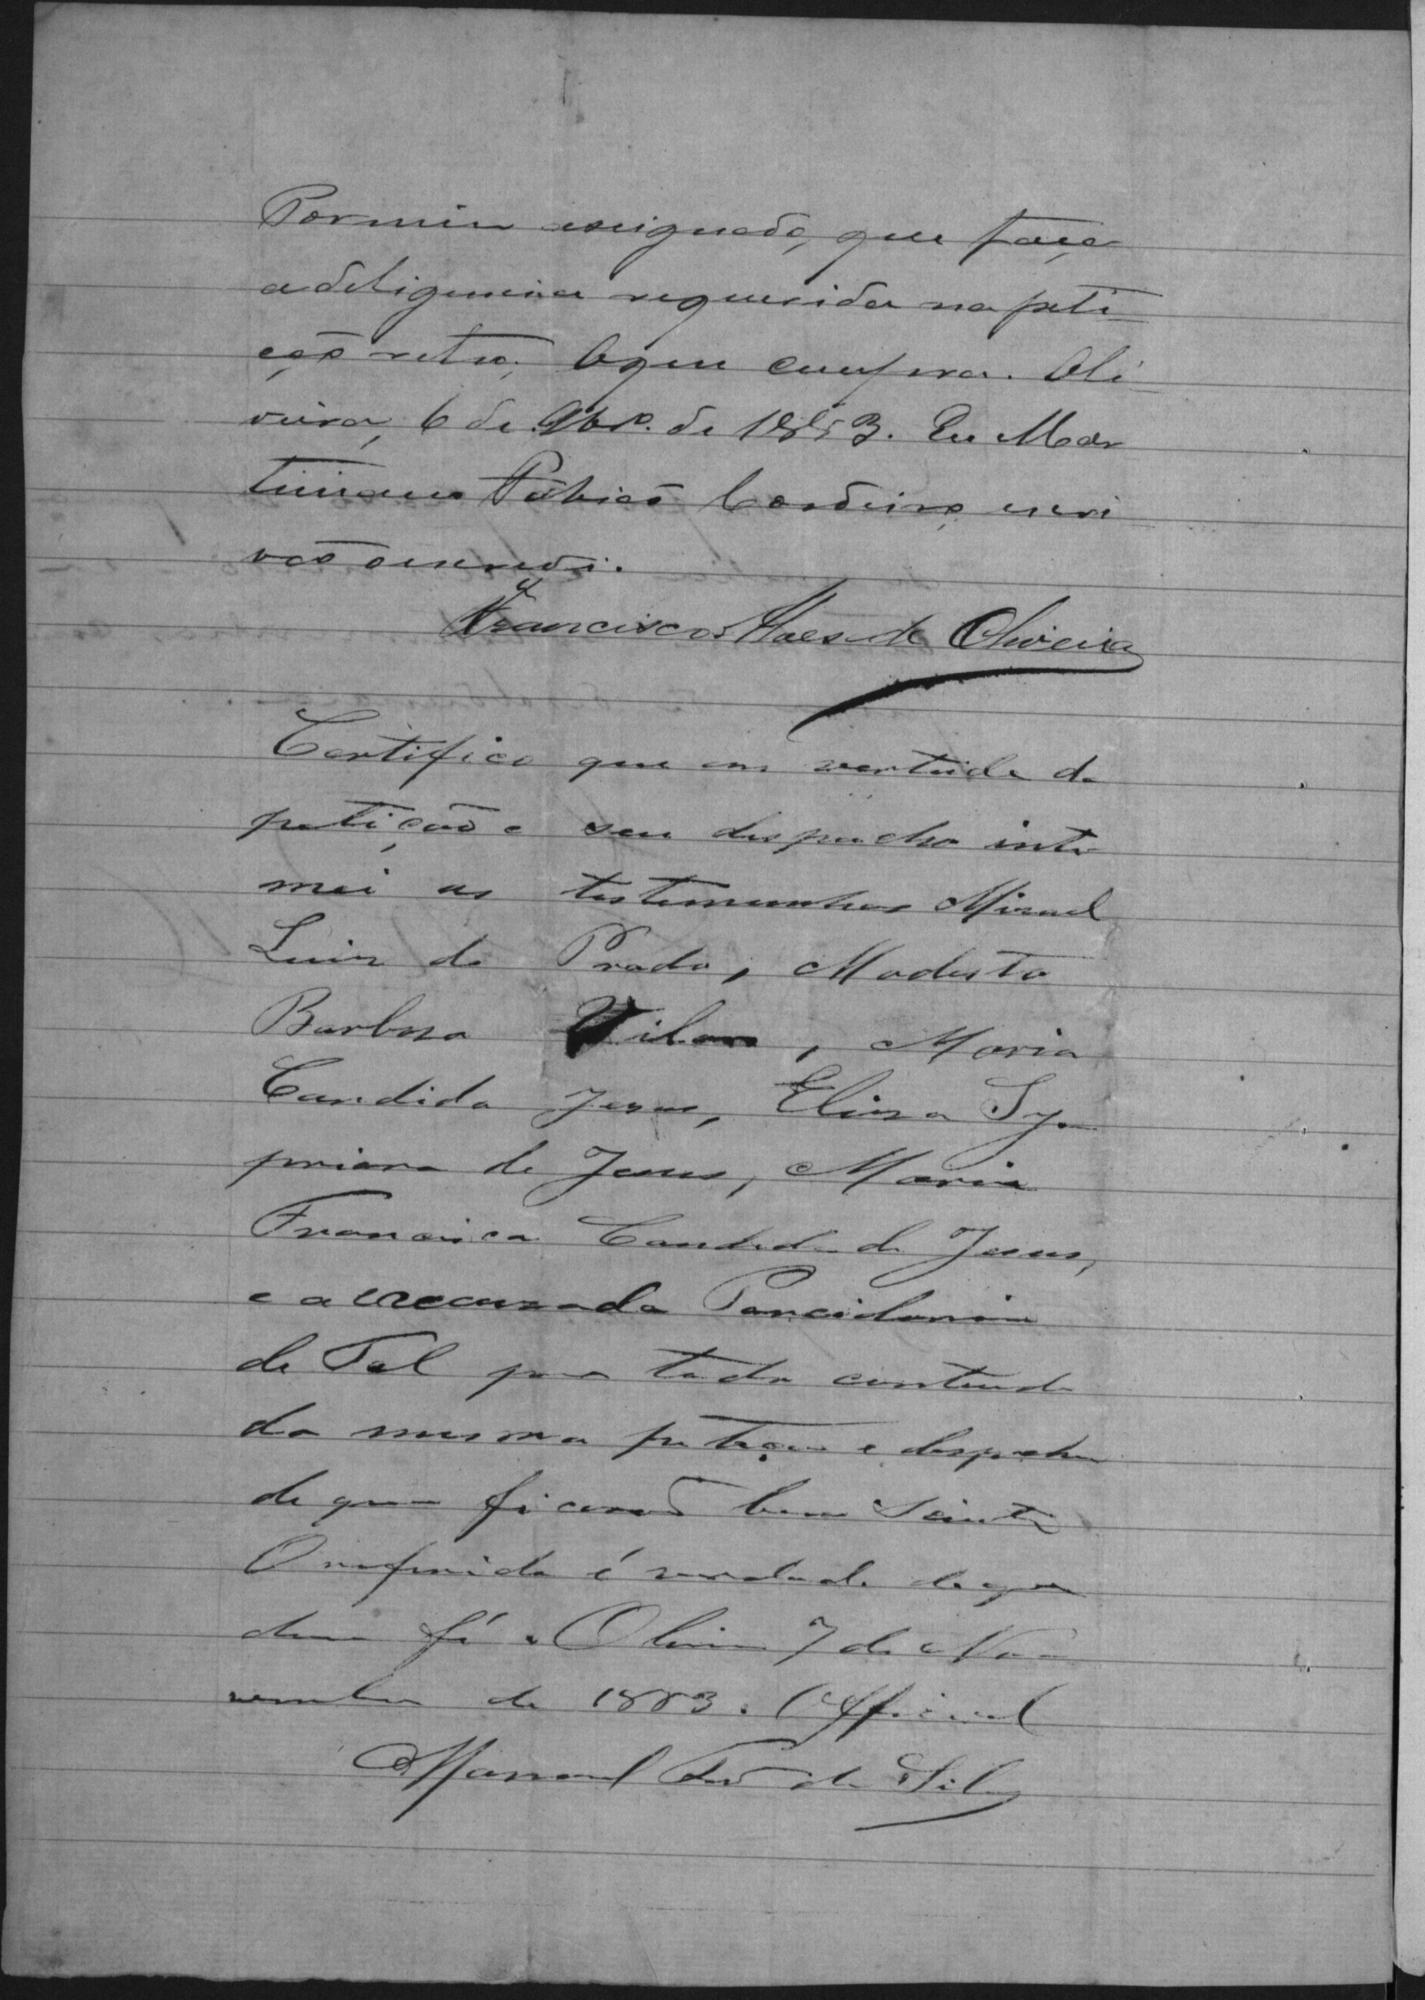 Pormim assignado, que faça
a deligencia requerida na peti-
ção retro; O que cumpra. Oli-
veira, 6 de 9br.o de 1883. Eu Mar
tiniano Cordeiro escri
vão o escrevi.
Francisco de Oliveira
Certifico que em vertude da
petição e seu despacho inti
mei as testemunhas Misael
Luiz do Prado, Modesto
Barboza Vilara, Maria
Candida Jesus, Eliza Sy
priana de Jesus, Maria
Francisca Candida de Jesus,
e a accuzada
de Tal por todo contiudo
da mesma petição e despacho
de que ficarão bem Sciente
O referido é verdade de que
dou fé. Oliveira 7 de No
vembro de 1883. O Official
Manoel da Silva